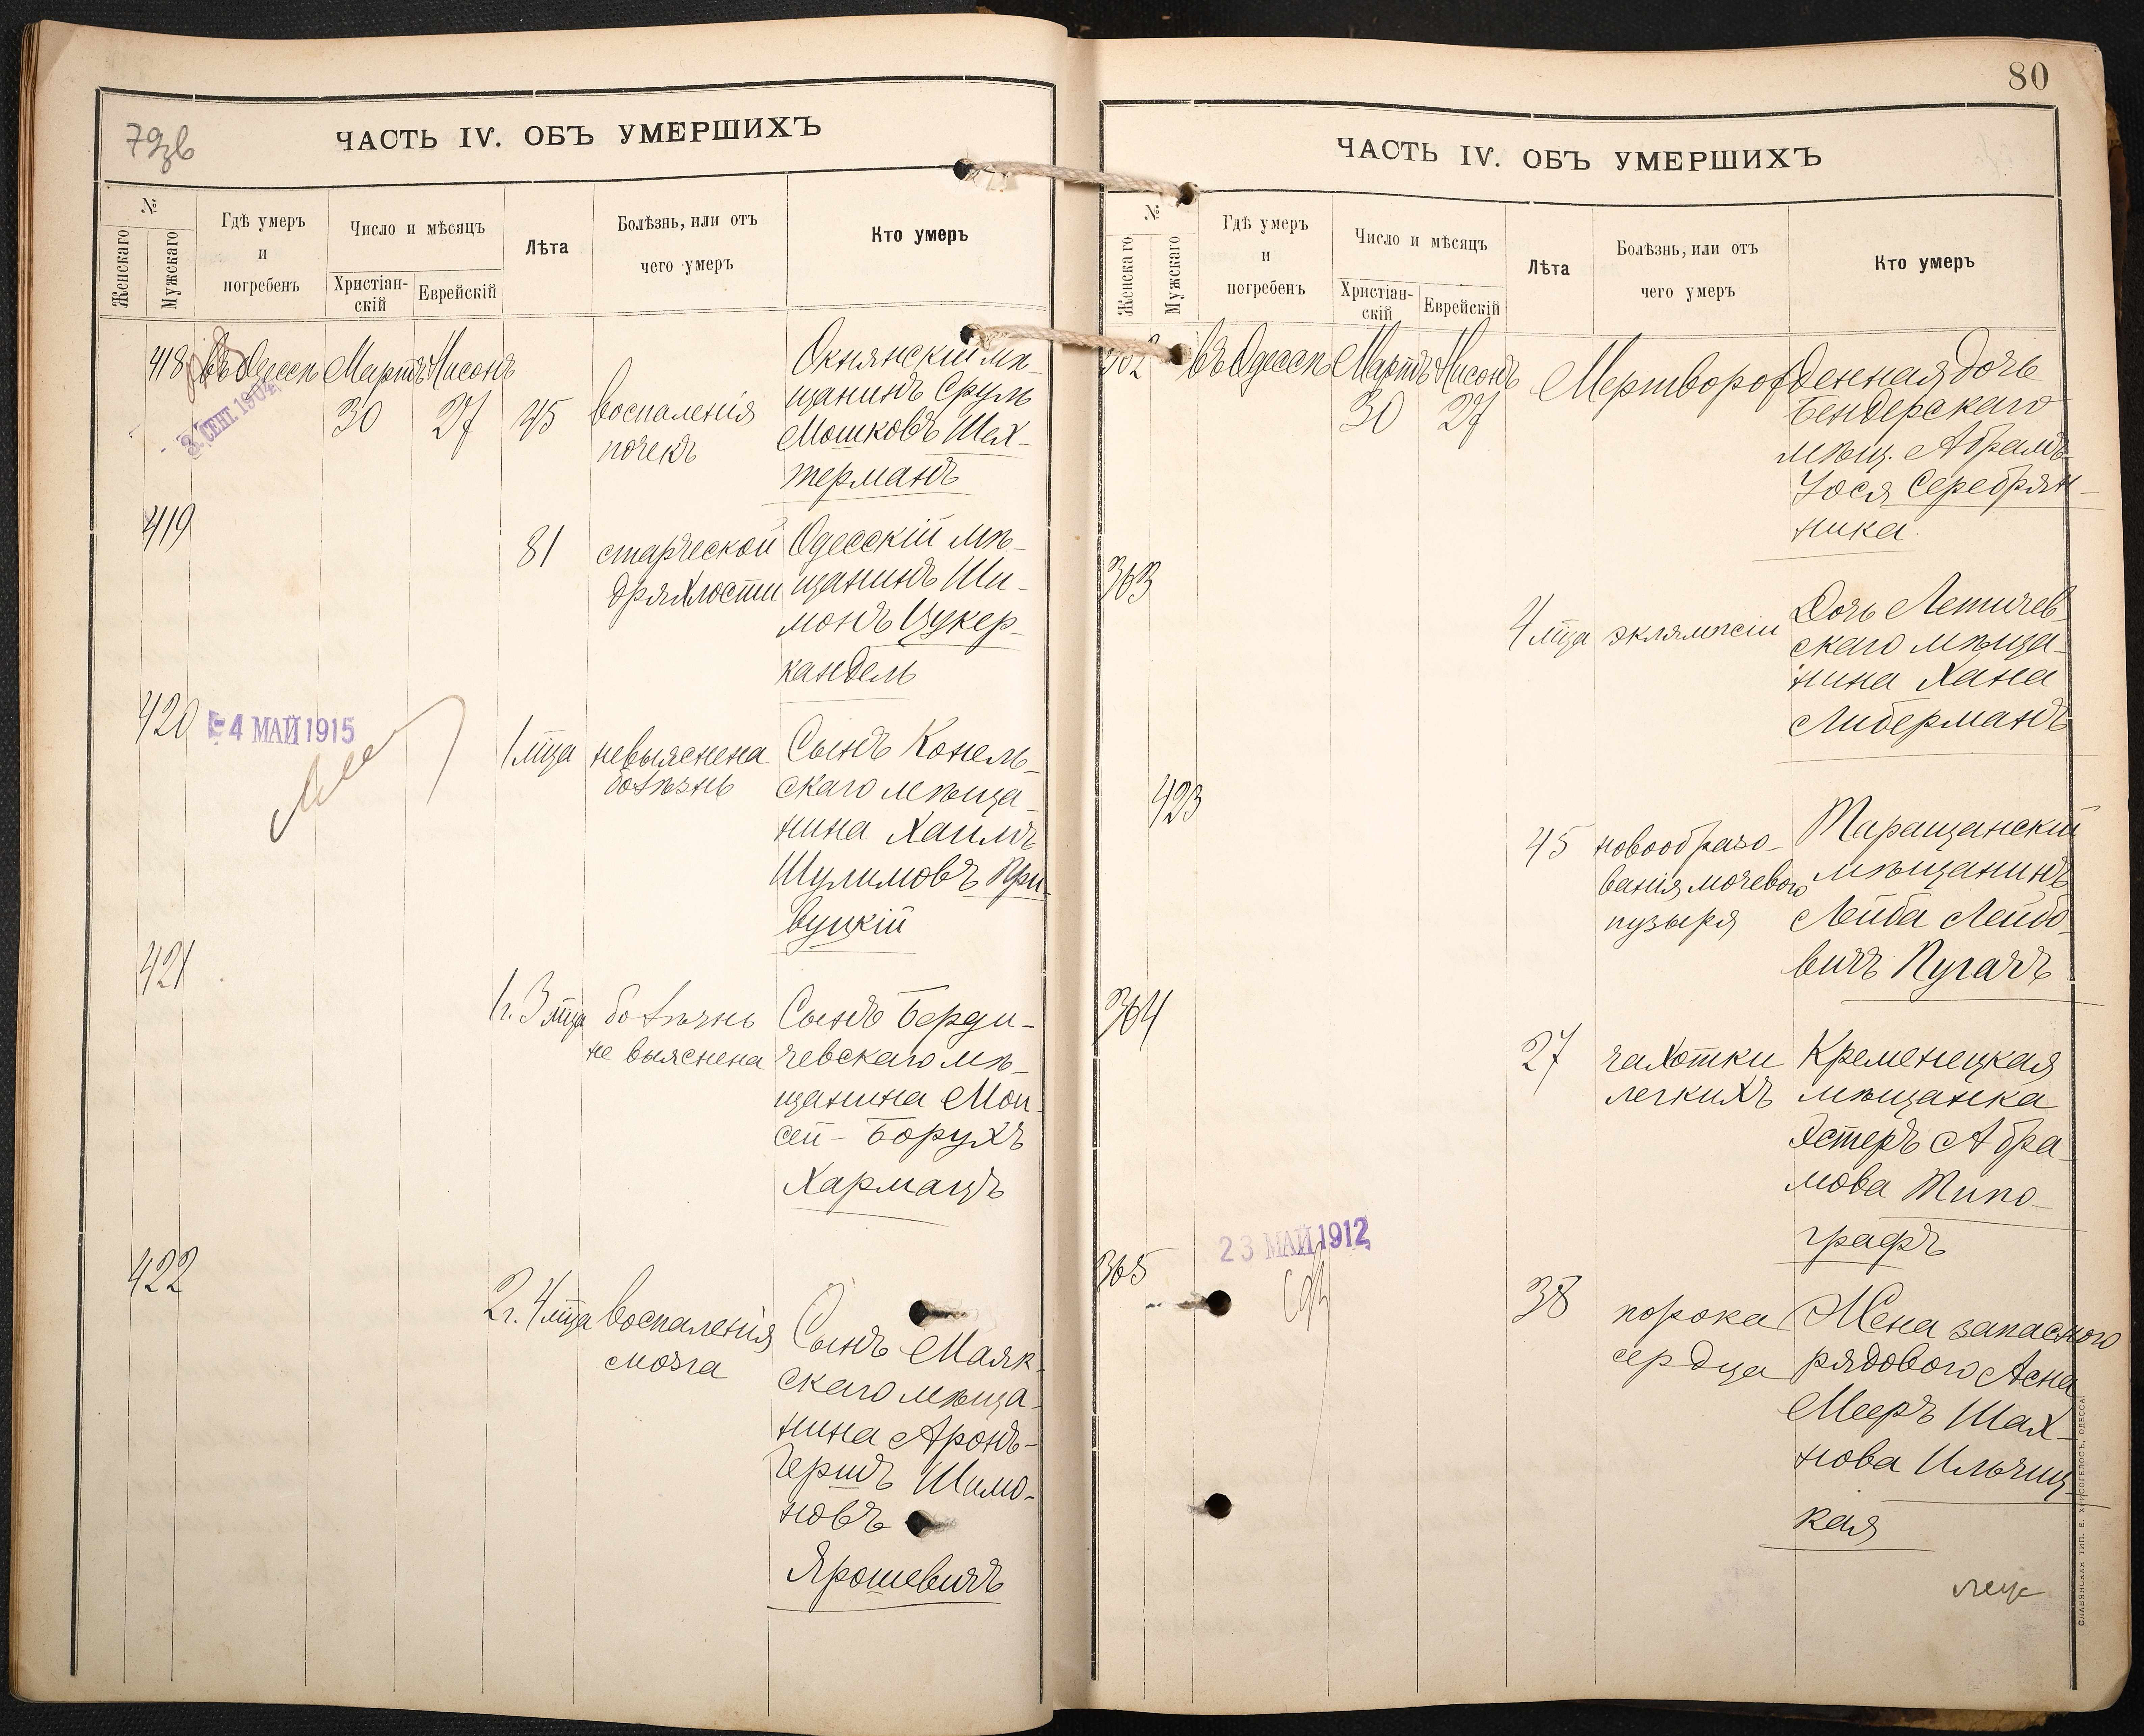 79 зв
ЧАСТЬ IV. ОБЪ УМЕРШИХЪ
№
Женскаго
Мужскаго
Гдѣ умеръ
и
погребенъ
Число и мѣсяцъ
Христіан-
скій
Еврейскій
Лѣта
Болѣзнь, или отъ
чего умеръ
Кто умеръ
418
въ Одессѣ
Мартъ
30
Нисонъ
27
45
воспаленія
почекъ
Окнянскій мѣ-
щанинъ Сруль
Мошковъ Шах-
терманъ
3. СЕНТ. 1904
419
81
старческой
дряхлости
Одесскій мѣ-
щанинъ Ши-
монъ Цукер-
кандель
420
-4 МАЙ 1915
1 мѣца
невыяснена
болѣзнь
Сынъ Конель-
скаго мѣща-
нина Хаимъ
Шулимовъ При-
вуцкій
421
1 г. 3 мѣца
болѣзнь
не выяснена
Сынъ Берди-
чевскаго мѣ-
щанина Мои-
сей-Борухъ
Хармацъ
422
2 г. 4 мѣца
воспаленія
мозга
Сынъ Маяк-
скаго мѣща-
нина Аронъ-
Гершъ Шимо-
новъ
Ярошевичъ
80
ЧАСТЬ IV. ОБЪ УМЕРШИХЪ
№
Женскаго
Мужскаго
Гдѣ умеръ
и
погребенъ
Число и мѣсяцъ
Христіан-
скій
Еврейскій
Лѣта
Болѣзнь, или отъ
чего умеръ
Кто умеръ
362
въ Одессѣ
Мартъ
30
Нисонъ
27
Мертворожденная дочь
Бендерскаго
мѣщ. Абрамъ-
Іося Серебрян-
ника.
363
4 мѣца
эклямпсіи
Дочь Летичев-
скаго мѣща-
нина Хана
Либерманъ
423
45
новообразо-
ванія мочевого
пузыря
Таращанскій
мѣщанинъ
Лейба Лейбо-
вичъ Пугачъ
364
27
чахотки
легкихъ
Кременецкая
мѣщанка
Эстеръ Абра-
мова Типо-
графъ
365
23 МАЙ 1912
38
порока
сердца
Жена запасного
рядового Асна
Мееръ Шах-
нова Ильчиц-
кая
СЛАВЯНСКАЯ ТИП. Е. ХРИСОГЕЛОСЪ, ОДЕССА.